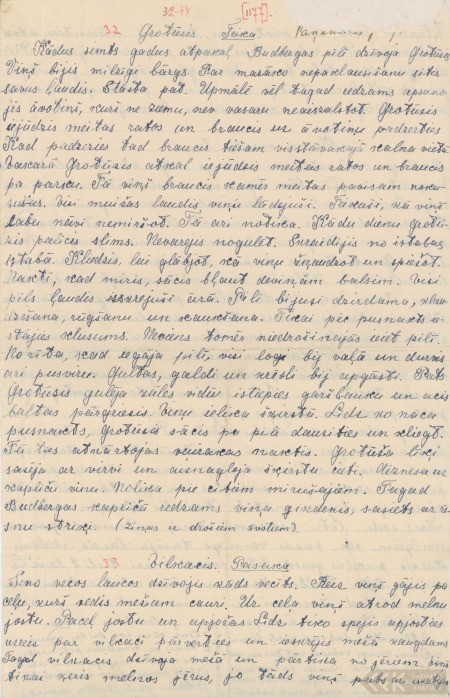 32-44 [1177]
32 Grotusis Teika
Kādus simts gadus atpakaļ Budbergas pilī dzīvoja Grotusis
Viņš bijis milzīgi bārgs. Par mazāko nepaklausīšanu sitis
savus ļaudis. Stāsta pat. Upmalē vēl tagad redzams apsūno-
jis avotiņš, kurš ne ziemu, nev vasaru neaizsalstot. Grotusis
iejūdzis meitas ratos un braucis uz avotiņu padzerties
Kad padzēries tad braucis tiešam visstāvākajā kalna vietā
Vakarā Grotusis atkal iejūdzis meitas ratos un braucis
pa parku. Tā viņš braucis kamēr meitas pavisam nokusu-
sušas. Visi muižas ļaudis viņu lādējuši. Teikuši, ka viņš
labu nāvi nemiršot. Tā arī noticis. Kādu dienu Grotu-
sis palicis slims. Nevarējis nogulēt. Skraidījis no istabas
istabā. Kliedzis, lai glābjot, ka viņu žņaudzot un spiežot.
Naktī, kad miris, sācis bļaut deviņām balsīm. Visi
pils ļaudis izskrējuši ārā. Pilī bijusi dzirdama,
užēšana, rūgšana un kaukšana. Tikai pēc pusnakts ie-
stājies klusums. Neviens tomēr nedrošinājās iet pilī.
No rīta, kad iegāja pilī, visi logi bij vaļā un durvis
arī pusviru. Gultas, galdi un krēsli bij apgāsti. Pats
Grotusis gulēja zāles vidū izstiepies garšļauku un acis
baltas pārgriezis. Viņu ielica šķirstā. Līdz no nāca
pusnakts, Grotusis sācis pa pili daudzīties un kliegt.
Tā tas atkārtojās vairākas naktis. Grotusa līķi
sasēja ar virvi un aisnagloja šķirstu cieti. Aiznesa uz
kapliču viņu. Nolika pie citām mirušajām. Tagad
Budbergas kapličā redzams viņa ģindenis, sasiets ar re-
snu striķi. (Ziņas ir drošām avotum).
33 Vilkacis. Pasaka
Sino vecos laukos dzīvojis kāds vecīts. Reiz viņš gājis pa
ceļu, kurš vedis mežam cauri. Uz ceļa viņš atrod melnu
jostu. Paceļ jostu un apjožas Līdz tiko spējis apjozties
uzreiz par vilkaci pārvērties un ieskrējis mežā naugdams
Tagad vilkacis dzīvoja mežā un pārtika no jēriem. Viņš
tikai ķēris melnos jērus, jo tāds viņš pats arī izskatījās